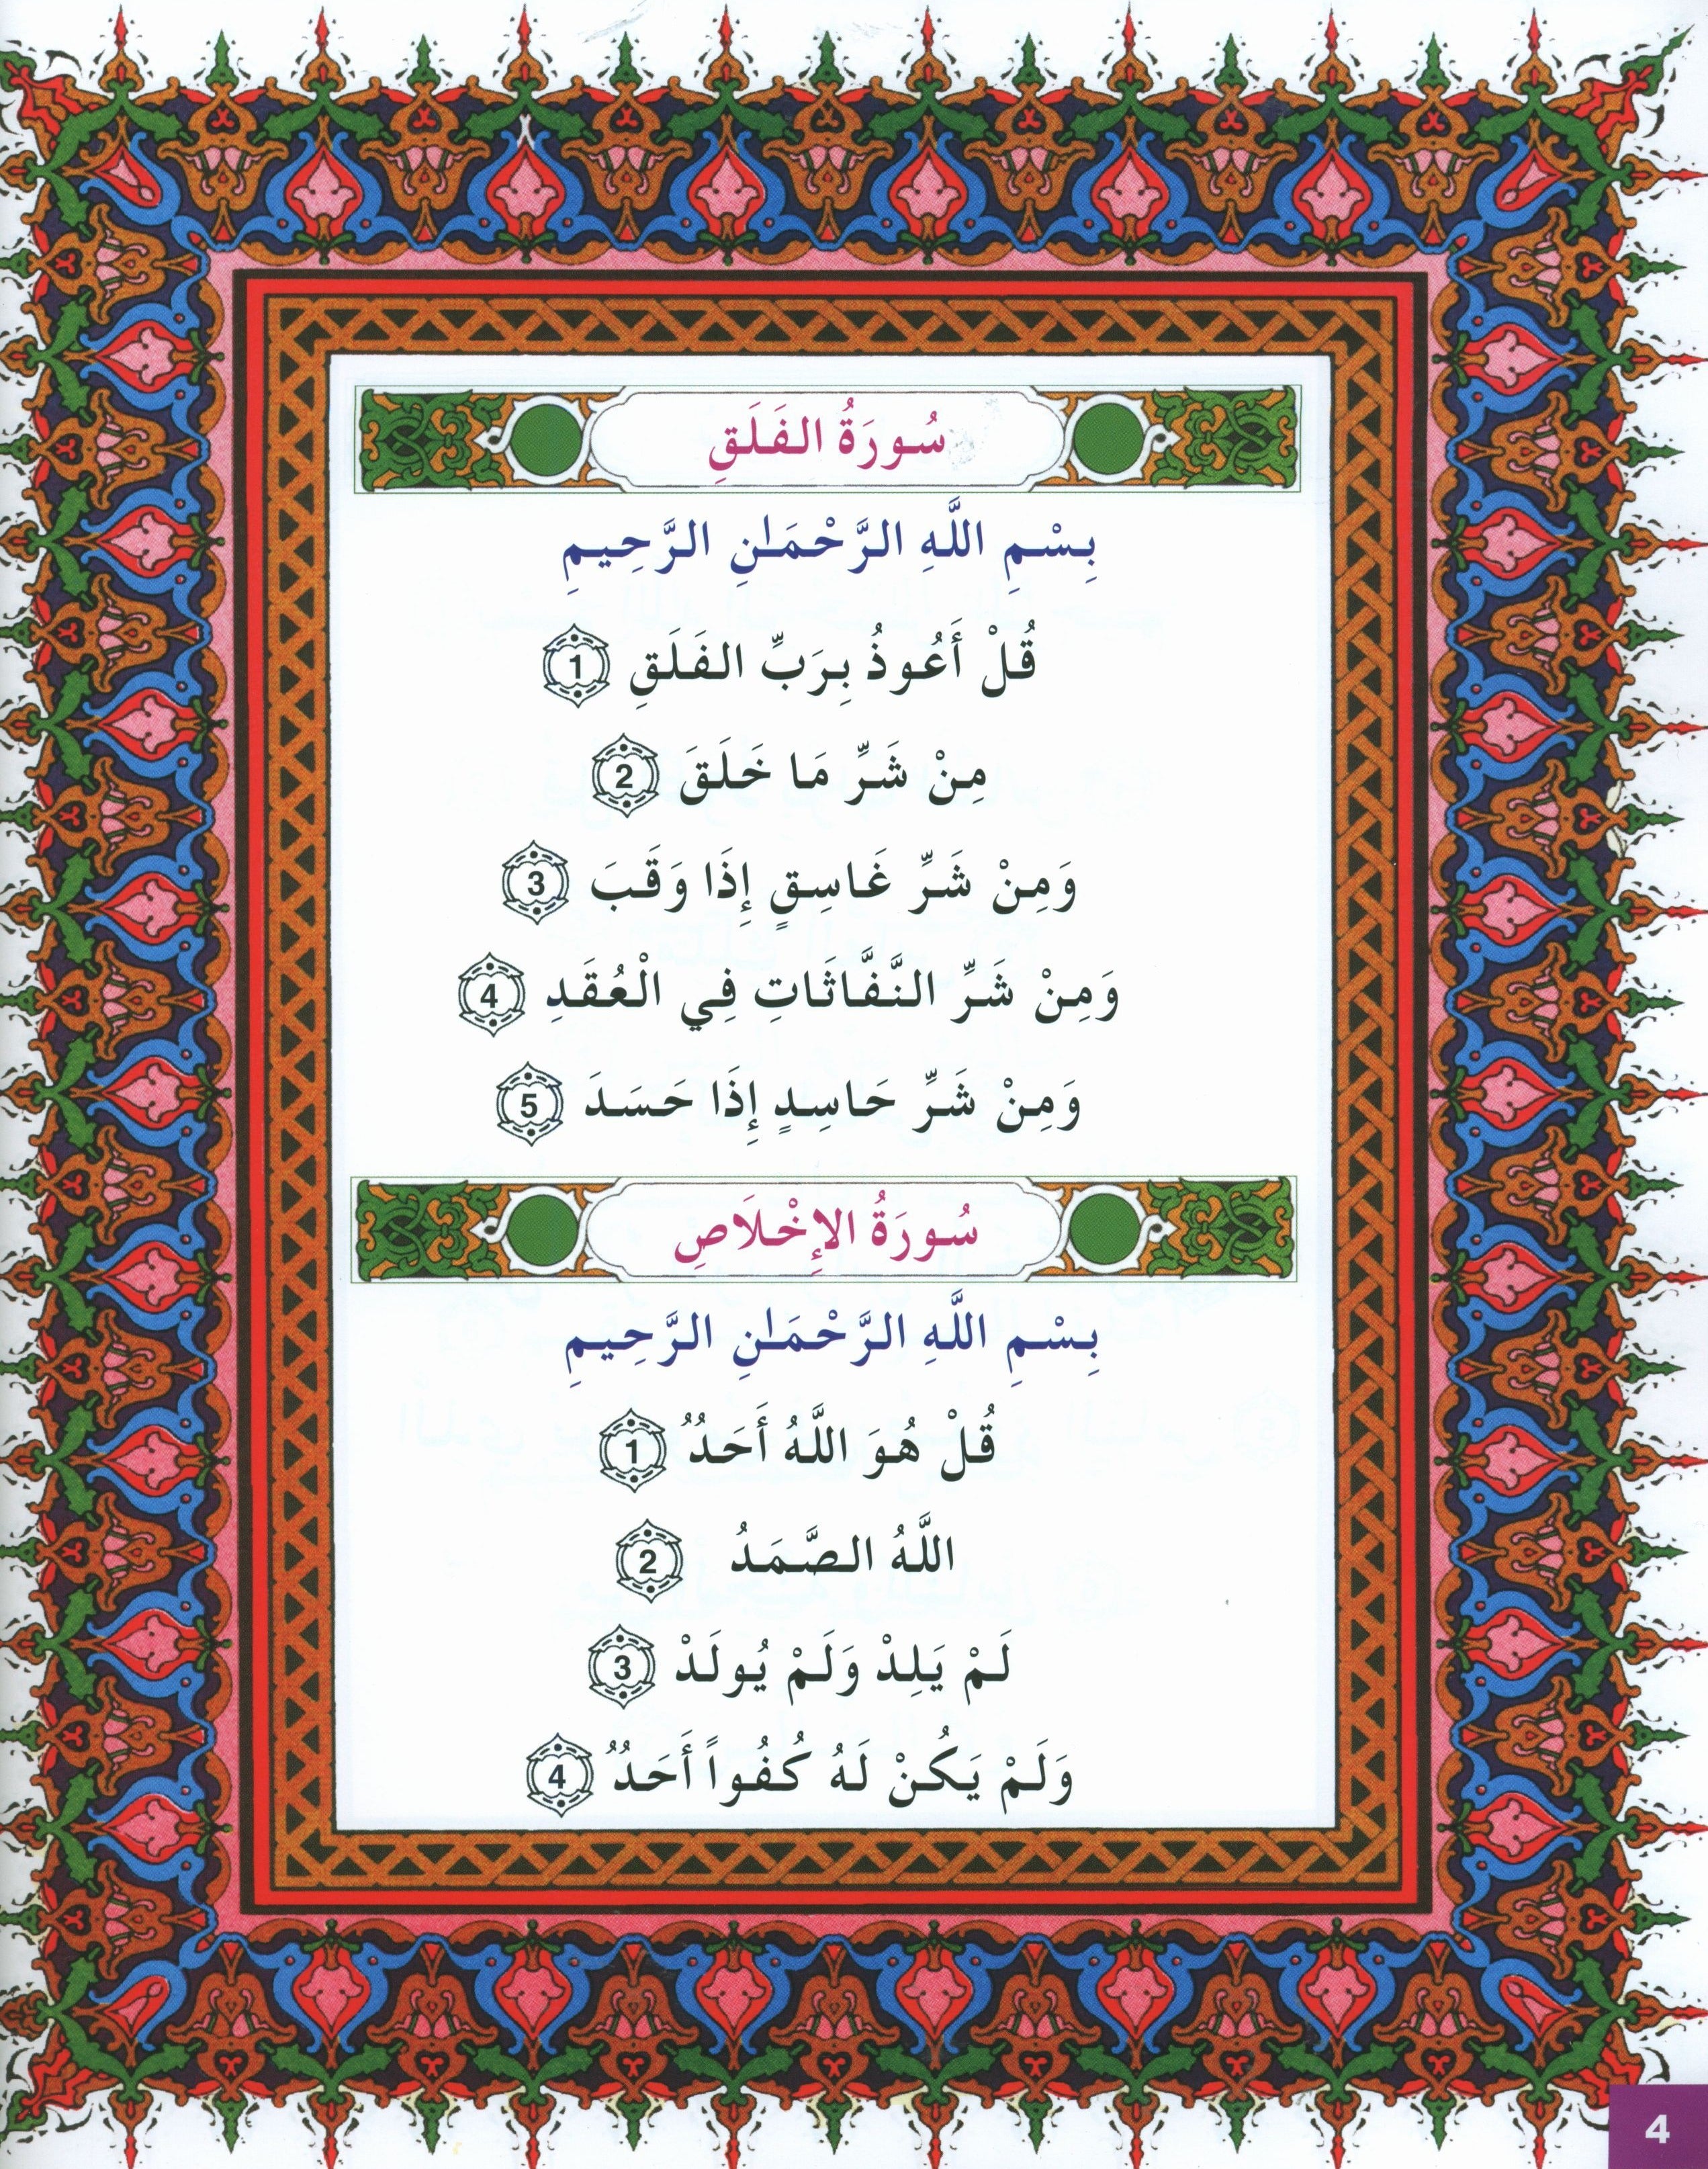 سُورَةُ الفَلَقِ
بِسْمِ اللَّهِ الرَّحْمَـٰنِ الرَّحِيمِ
قُلْ أَعُوذُ بِرَبِّ الفَلَقِ 1
مِنْ شَرِّ مَا خَلَقَ 2
وَمِنْ شَرِّ غَاسِقٍ إِذَا وَقَبَ 3
وَمِنْ شَرِّ النَّفَّاثَاتِ فِي الْعُقَدِ 4
وَمِنْ شَرِّ حَاسِدٍ إِذَا حَسَدَ 5
سُورَةُ الإِخْلَاصِ
بِسْمِ اللَّهِ الرَّحْمَـٰنِ الرَّحِيمِ
قُلْ هُوَ اللَّهُ أَحَدٌ 1
اللَّهُ الصَّمَدُ 2
لَمْ يَلِدْ وَلَمْ يُولَدْ 3
وَلَمْ يَكُنْ لَهُ كُفُواً أَحَدٌ 4
4